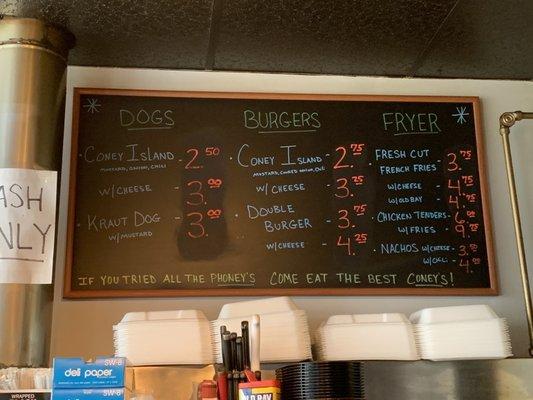 DOGS
CONEY ISLAND - 2.50
MUSTARD, ONION, CHILI
W/CHEESE - 3.00
KRAUT DOG - 3.00
W/MUSTARD
BURGERS
CONEY ISLAND - 2.75
W/CHEESE - 3.25
DOUBLE
BURGER - 3.75
W/CHEESE - 4.25
FRYER
FRESH CUT
FRENCH FRIES - 3.75
W/CHEESE - 4.75
W/OLD BAY - 4.25
CHICKEN TENDERS - 6
W/FRIES - 9
NACHOS W/CHEESE - 3
W/CHILI - 4
IF YOU TRIED ALL THE PHONEY'S COME EAT THE BEST CONEY'S!
ASH
NLY
deli paper
SW-8
SW-8
WRAPPED
OLD BAY